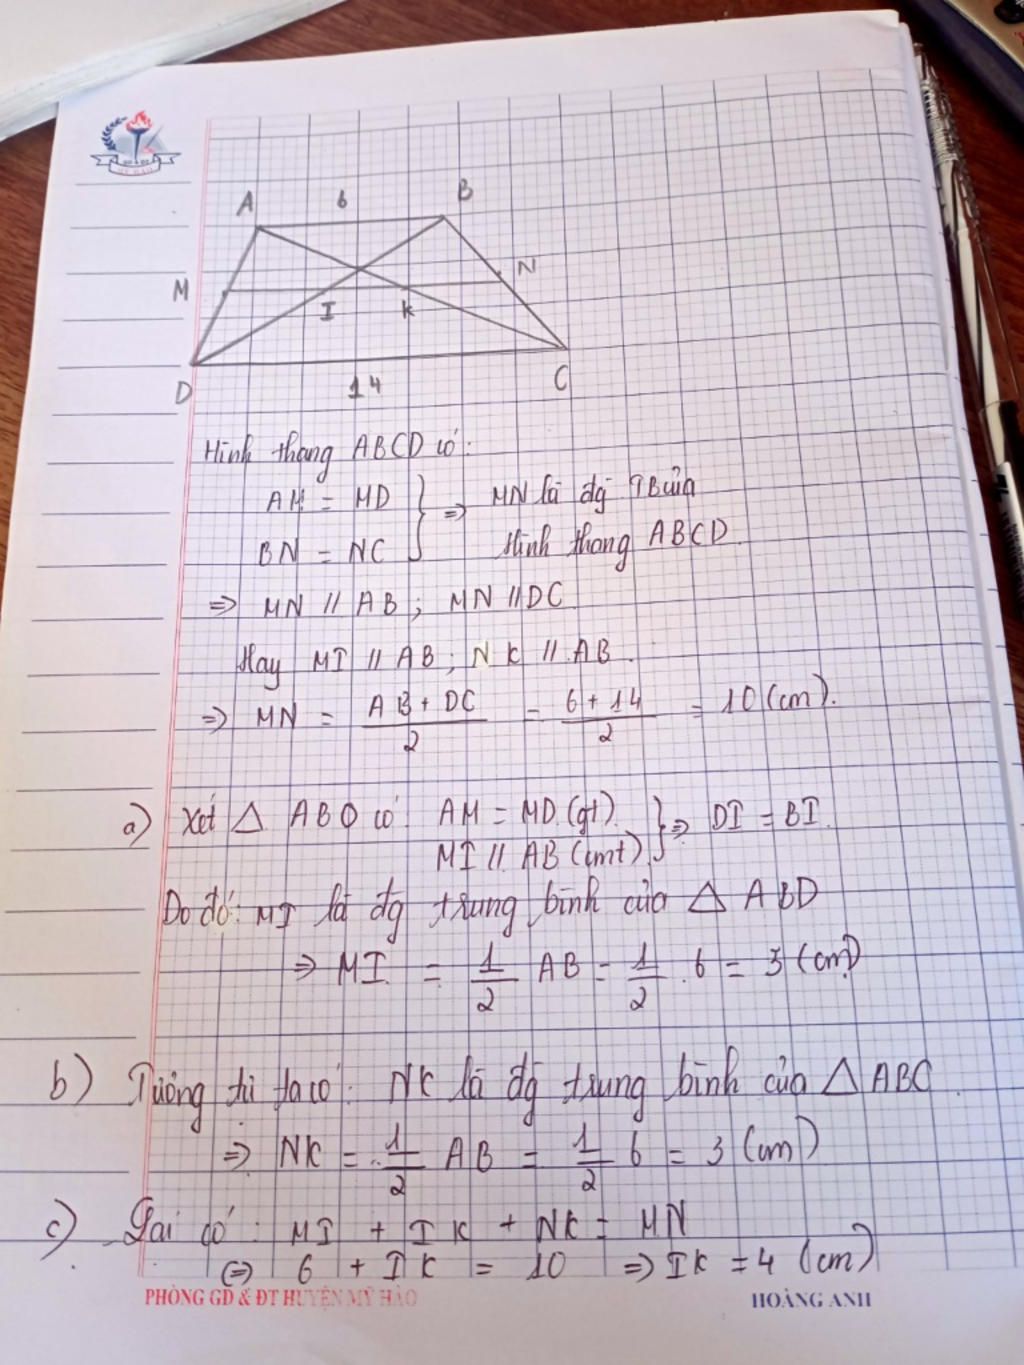 A 6 B
M N
I K
D 14 C
Hình thang ABCD có:
AM = MD
BN = NC } => MN là đg TB của
Hình thang ABCD
=> MN // AB ; MN // DC
Hay MI // AB ; NK // AB.
=> MN = AB + DC / 2 = 6 + 14 / 2 = 10 (cm).
a) Xét △ ABD có: AM = MD (gt).
MI // AB (cmt) } => DI = BI.
Do đó: MI là đg trung bình của △ ABD
=> MI = 1/2 AB = 1/2 . 6 = 3 (cm)
b) Tương tự ta có: NK là đg trung bình của △ ABC.
=> NK = 1/2 AB = 1/2 6 = 3 (cm)
c) Lại có: MI + IK + NK = MN
<=> 6 + IK = 10 => IK = 4 (cm)
PHÒNG GD & ĐT HUYỆN MỸ HÀO HOÀNG ANH